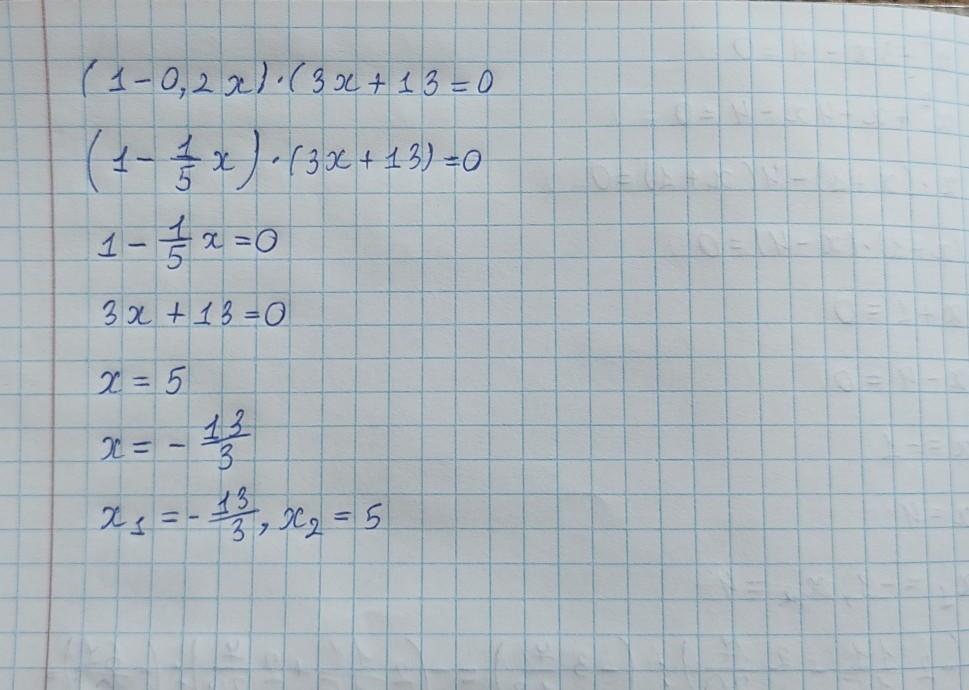 (1-0,2x)·(3x+13=0
(1-1/5x)·(3x+13)=0
1-1/5x=0
3x+13=0
x=5
x=-13/3
x₁=-13/3, x₂=5